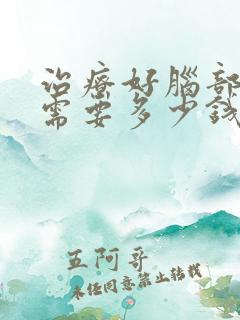 治療好腦部
需要多少錢
五阿哥
未经同意禁止转载